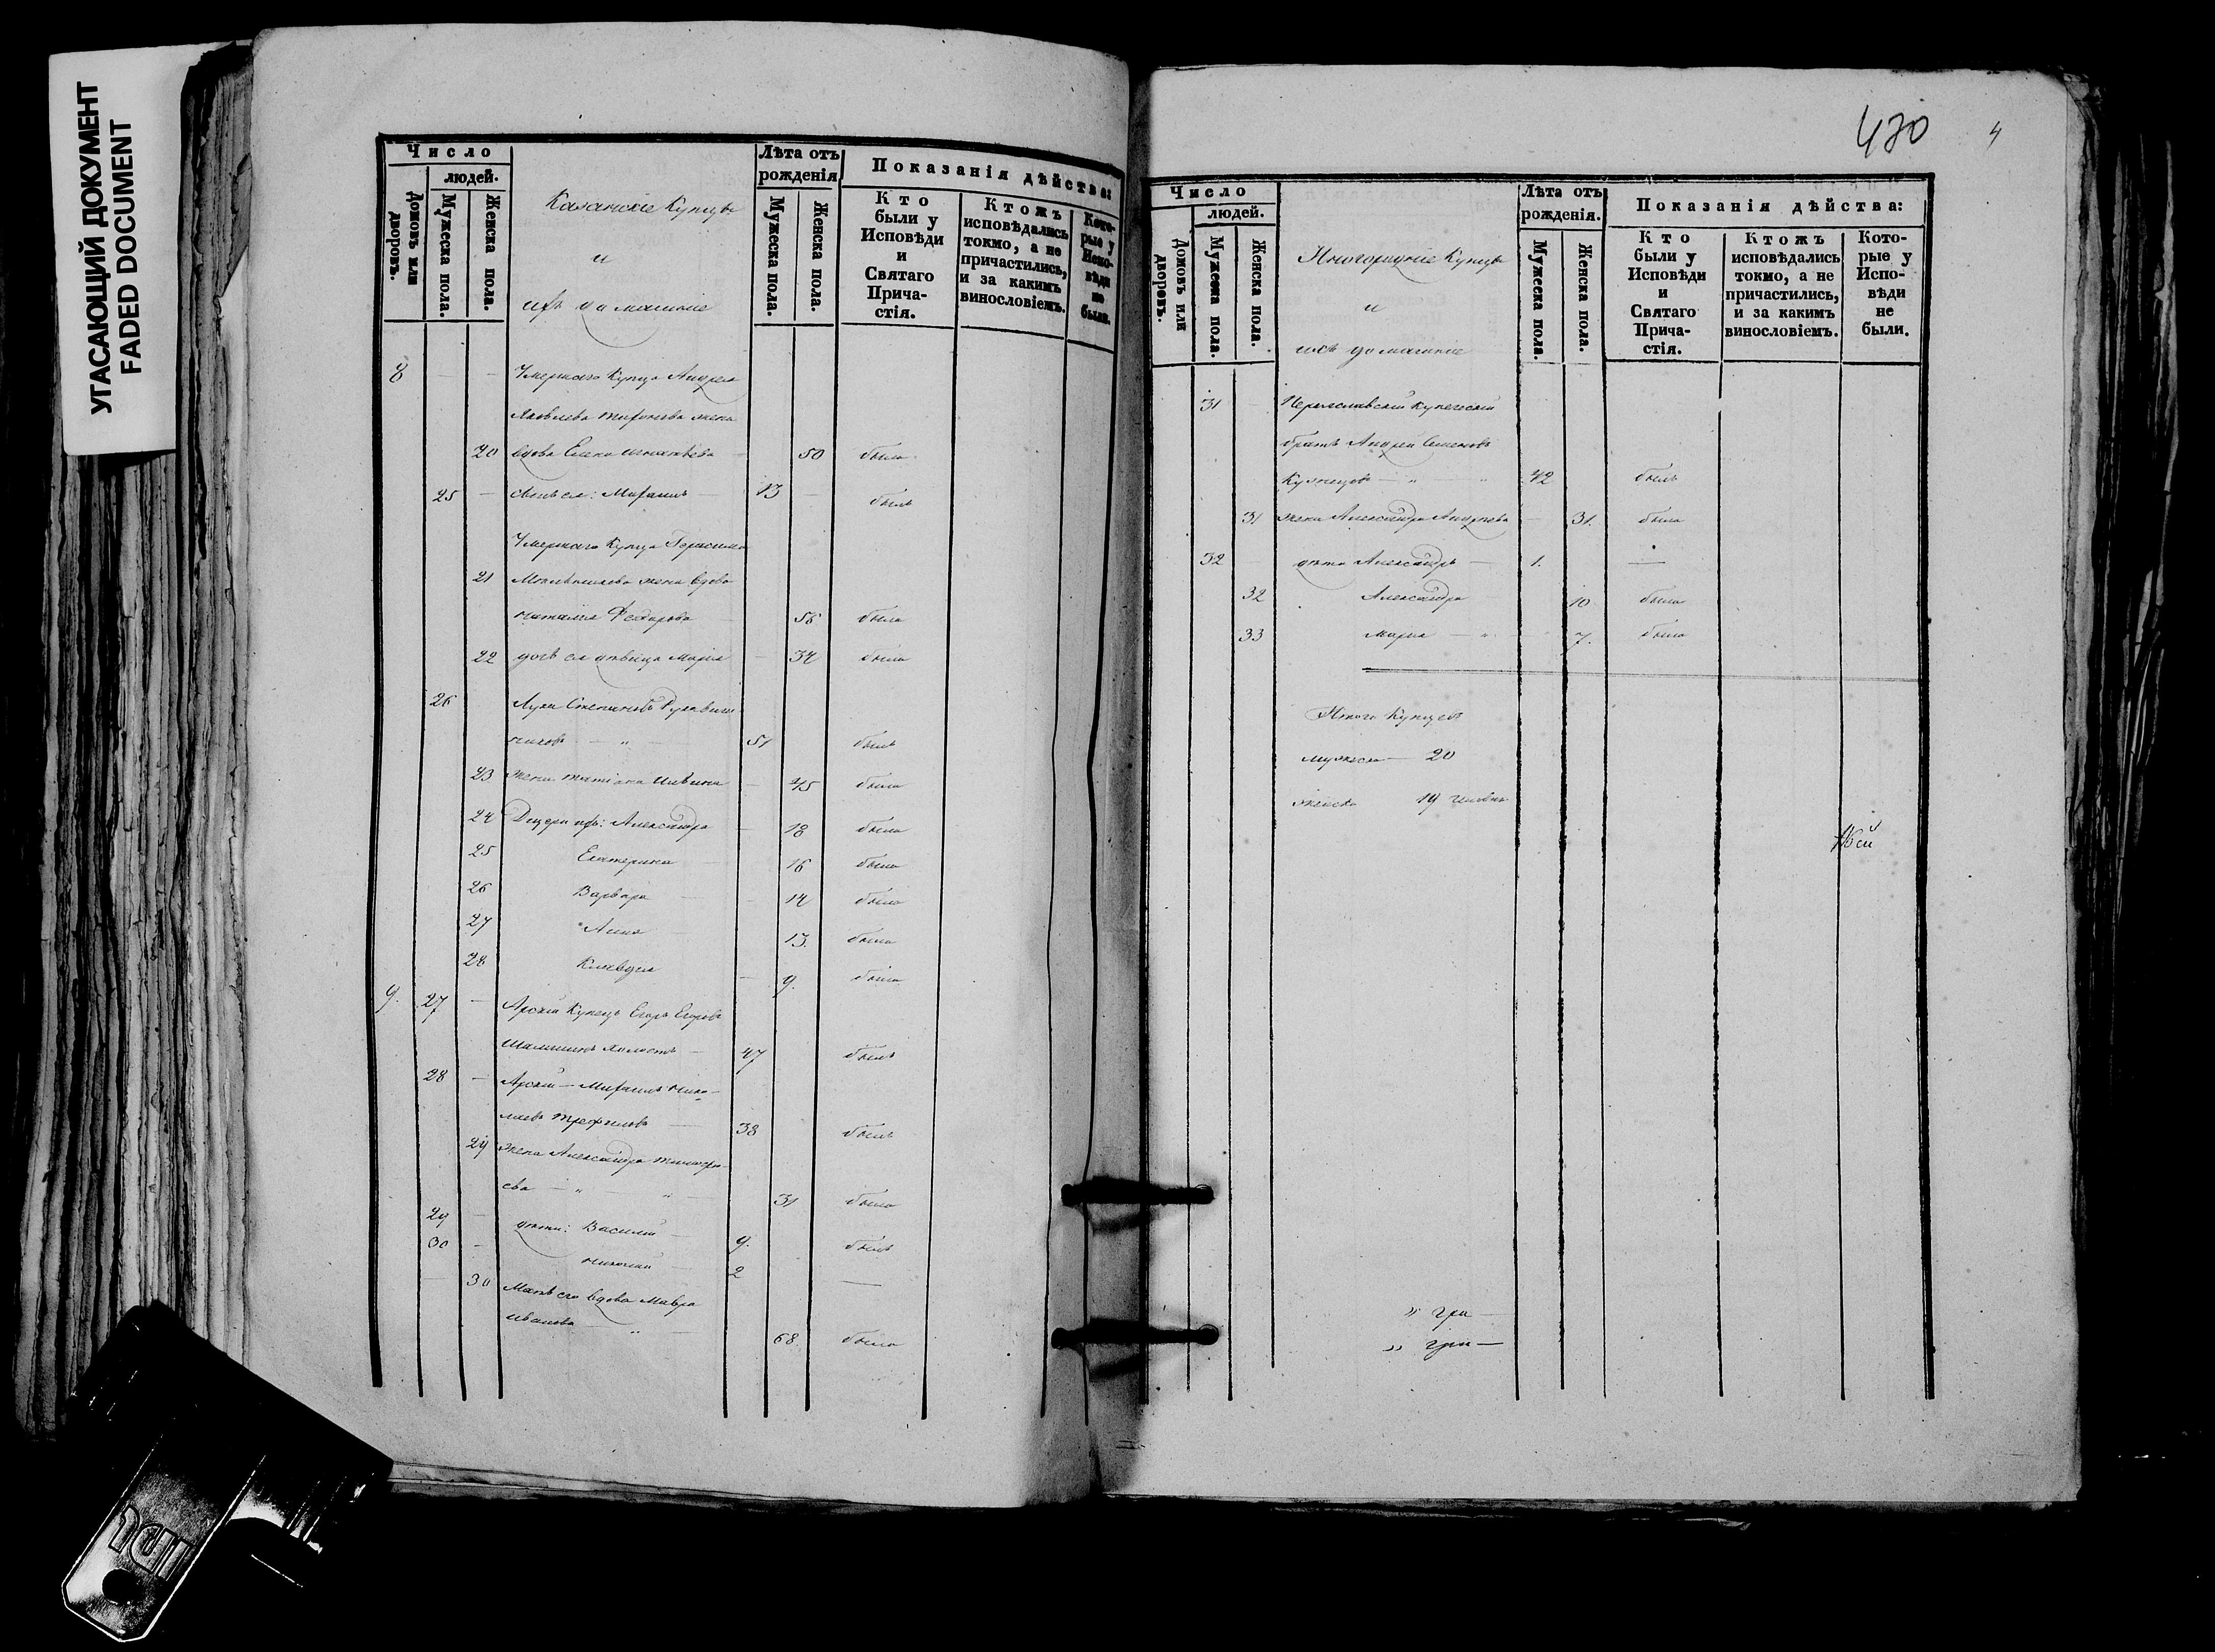 УГАСАЮЩИЙ ДОКУМЕНТ
FADED DOCUMENT
Число
людей.
Домовъ или дворовъ.
Мужеска пола.
Женска пола.
Казанскіе Купцы
и
ихъ домашніе
Лѣта отъ рожденія
Мужеска пола.
Женска пола.
Показанія дѣйства:
Кто были у Исповѣди и Святаго Прича-стія.
Ктожъ исповѣдались токмо, а не причастились, и за какимъ винословіемъ.
Кото-рые у Испо-вѣди не были.
8 — — Умершаго Купца Андрея
Яковлева жена
20 вдова Елена Игнатьева — 50 была
25 — сынъ ея: Михаилъ — 13 — былъ
Умершаго Купца Герасима
21 жена вдова
Наталья Федорова — 58 была
22 дочь ея дѣвица Марія — 34 была
26 Лука Степановъ Рукавиш-
никовъ — " — 51 былъ
23 Жена Татіана — 45 была
24 Дщери ихъ: Александра — 18 была
25 Екатерина — 16 была
26 Варвара — 14 была
27 Анна — 13. была
28 Клавдія — 9. была
9. 27 — Арскій Купецъ Егоръ Егоровъ
холостъ — 47 былъ
28 — Арскій — Михаилъ Нико-
лаевъ Трефиловъ — 38 былъ
29 Жена Александра Тимофее-
ва — " — " — 31 была
29 — дѣти: Василій — 9. былъ
30 — Николай — 2 —
— 30 Мать его вдова Мавра
Иванова — " — 68. была
470 4
Число
людей.
Домовъ или дворовъ.
Мужеска пола.
Женска пола.
Иногородніе Купцы
и
ихъ домашніе
Лѣта отъ рожденія.
Мужеска пола.
Женска пола.
Показанія дѣйства:
Кто были у Исповѣди и Святаго Прича-стія.
Ктожъ исповѣдались токмо, а не причастились, и за какимъ винословіемъ.
Кото-рые у Испо-вѣди не были.
31 — Переславскій купеческій
братъ Андрей Семеновъ
Кузнецовъ — " — " 42 былъ
31 жена Александра Андреева — 31. была
32 — дѣти Александръ — 1. —
32 Александра — 10 была
33 Марія — " — 7. была
Итого Купцевъ
мужеска — 20
женска 19